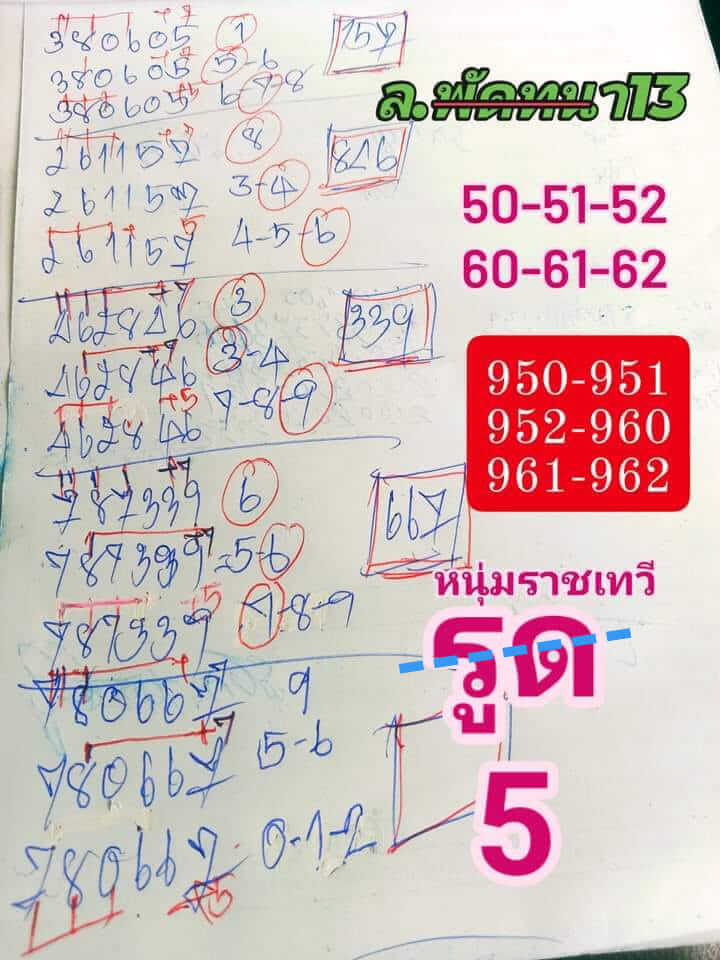 380605 +7 1
380605 5-6
380605 +5 6-7-8
157
ล.พัดทนา13
261157 +7 8
261157 3-4
261157 5 4-5-6
846
50-51-52
60-61-62
462846 +7 3
462846 3-4
462846 +5 7-8-9
339
950-951
952-960
961-962
787339 +7 6
787339 =5-6
787339 +5 7-8-9
667
หนุ่มราชเทวี
รูด
5
780667 9
780667 +7 5-6
780667 +5 0-1-2